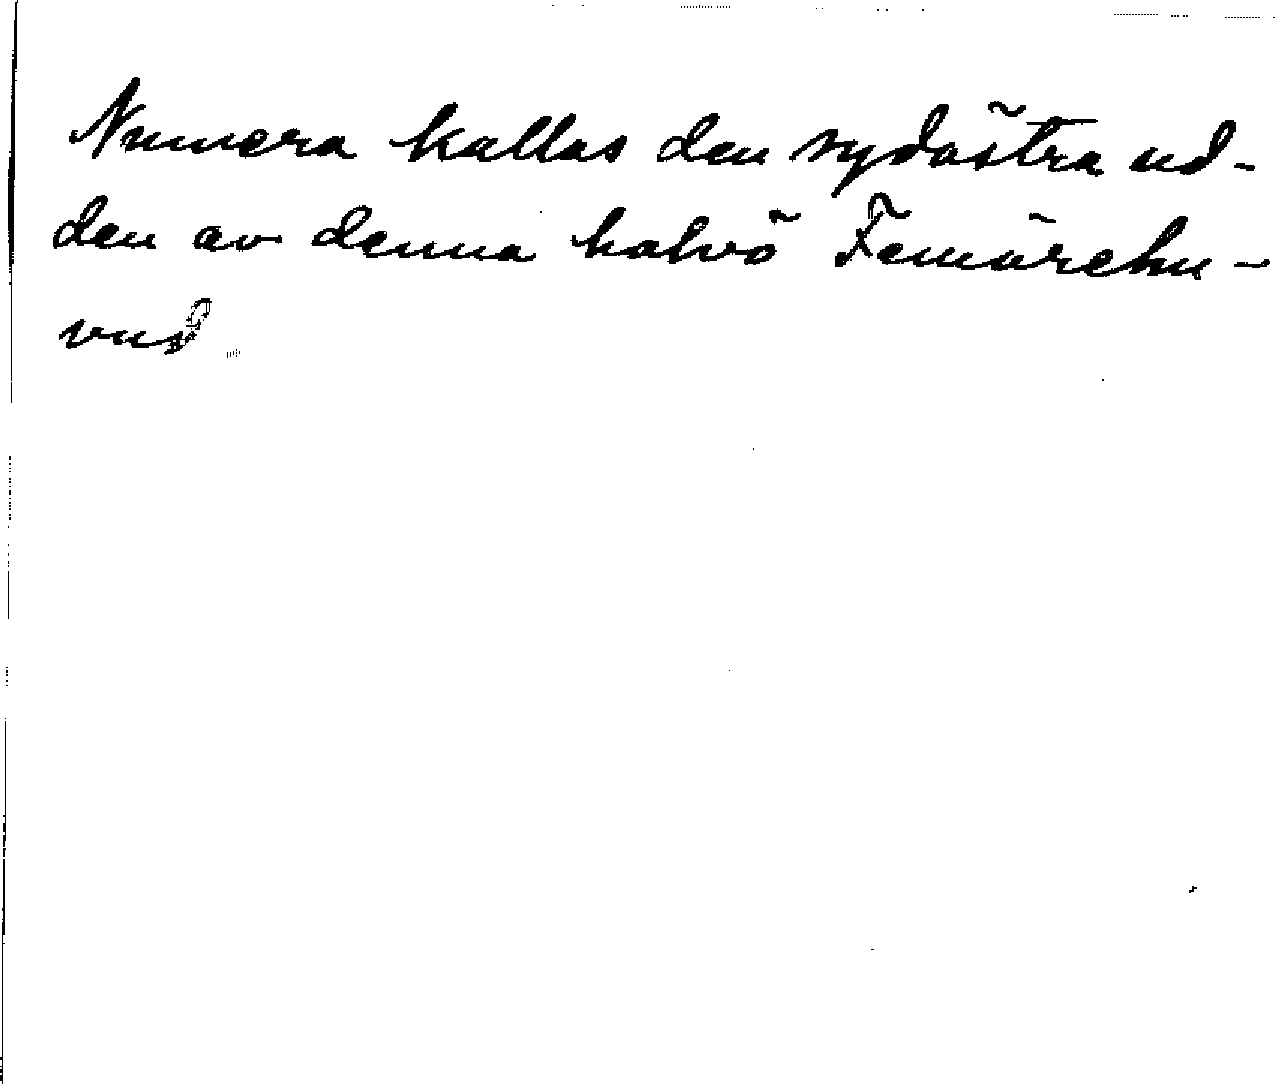 Numera kallas den sydöstra ud-
den av denna halvö Femörehu-
vud